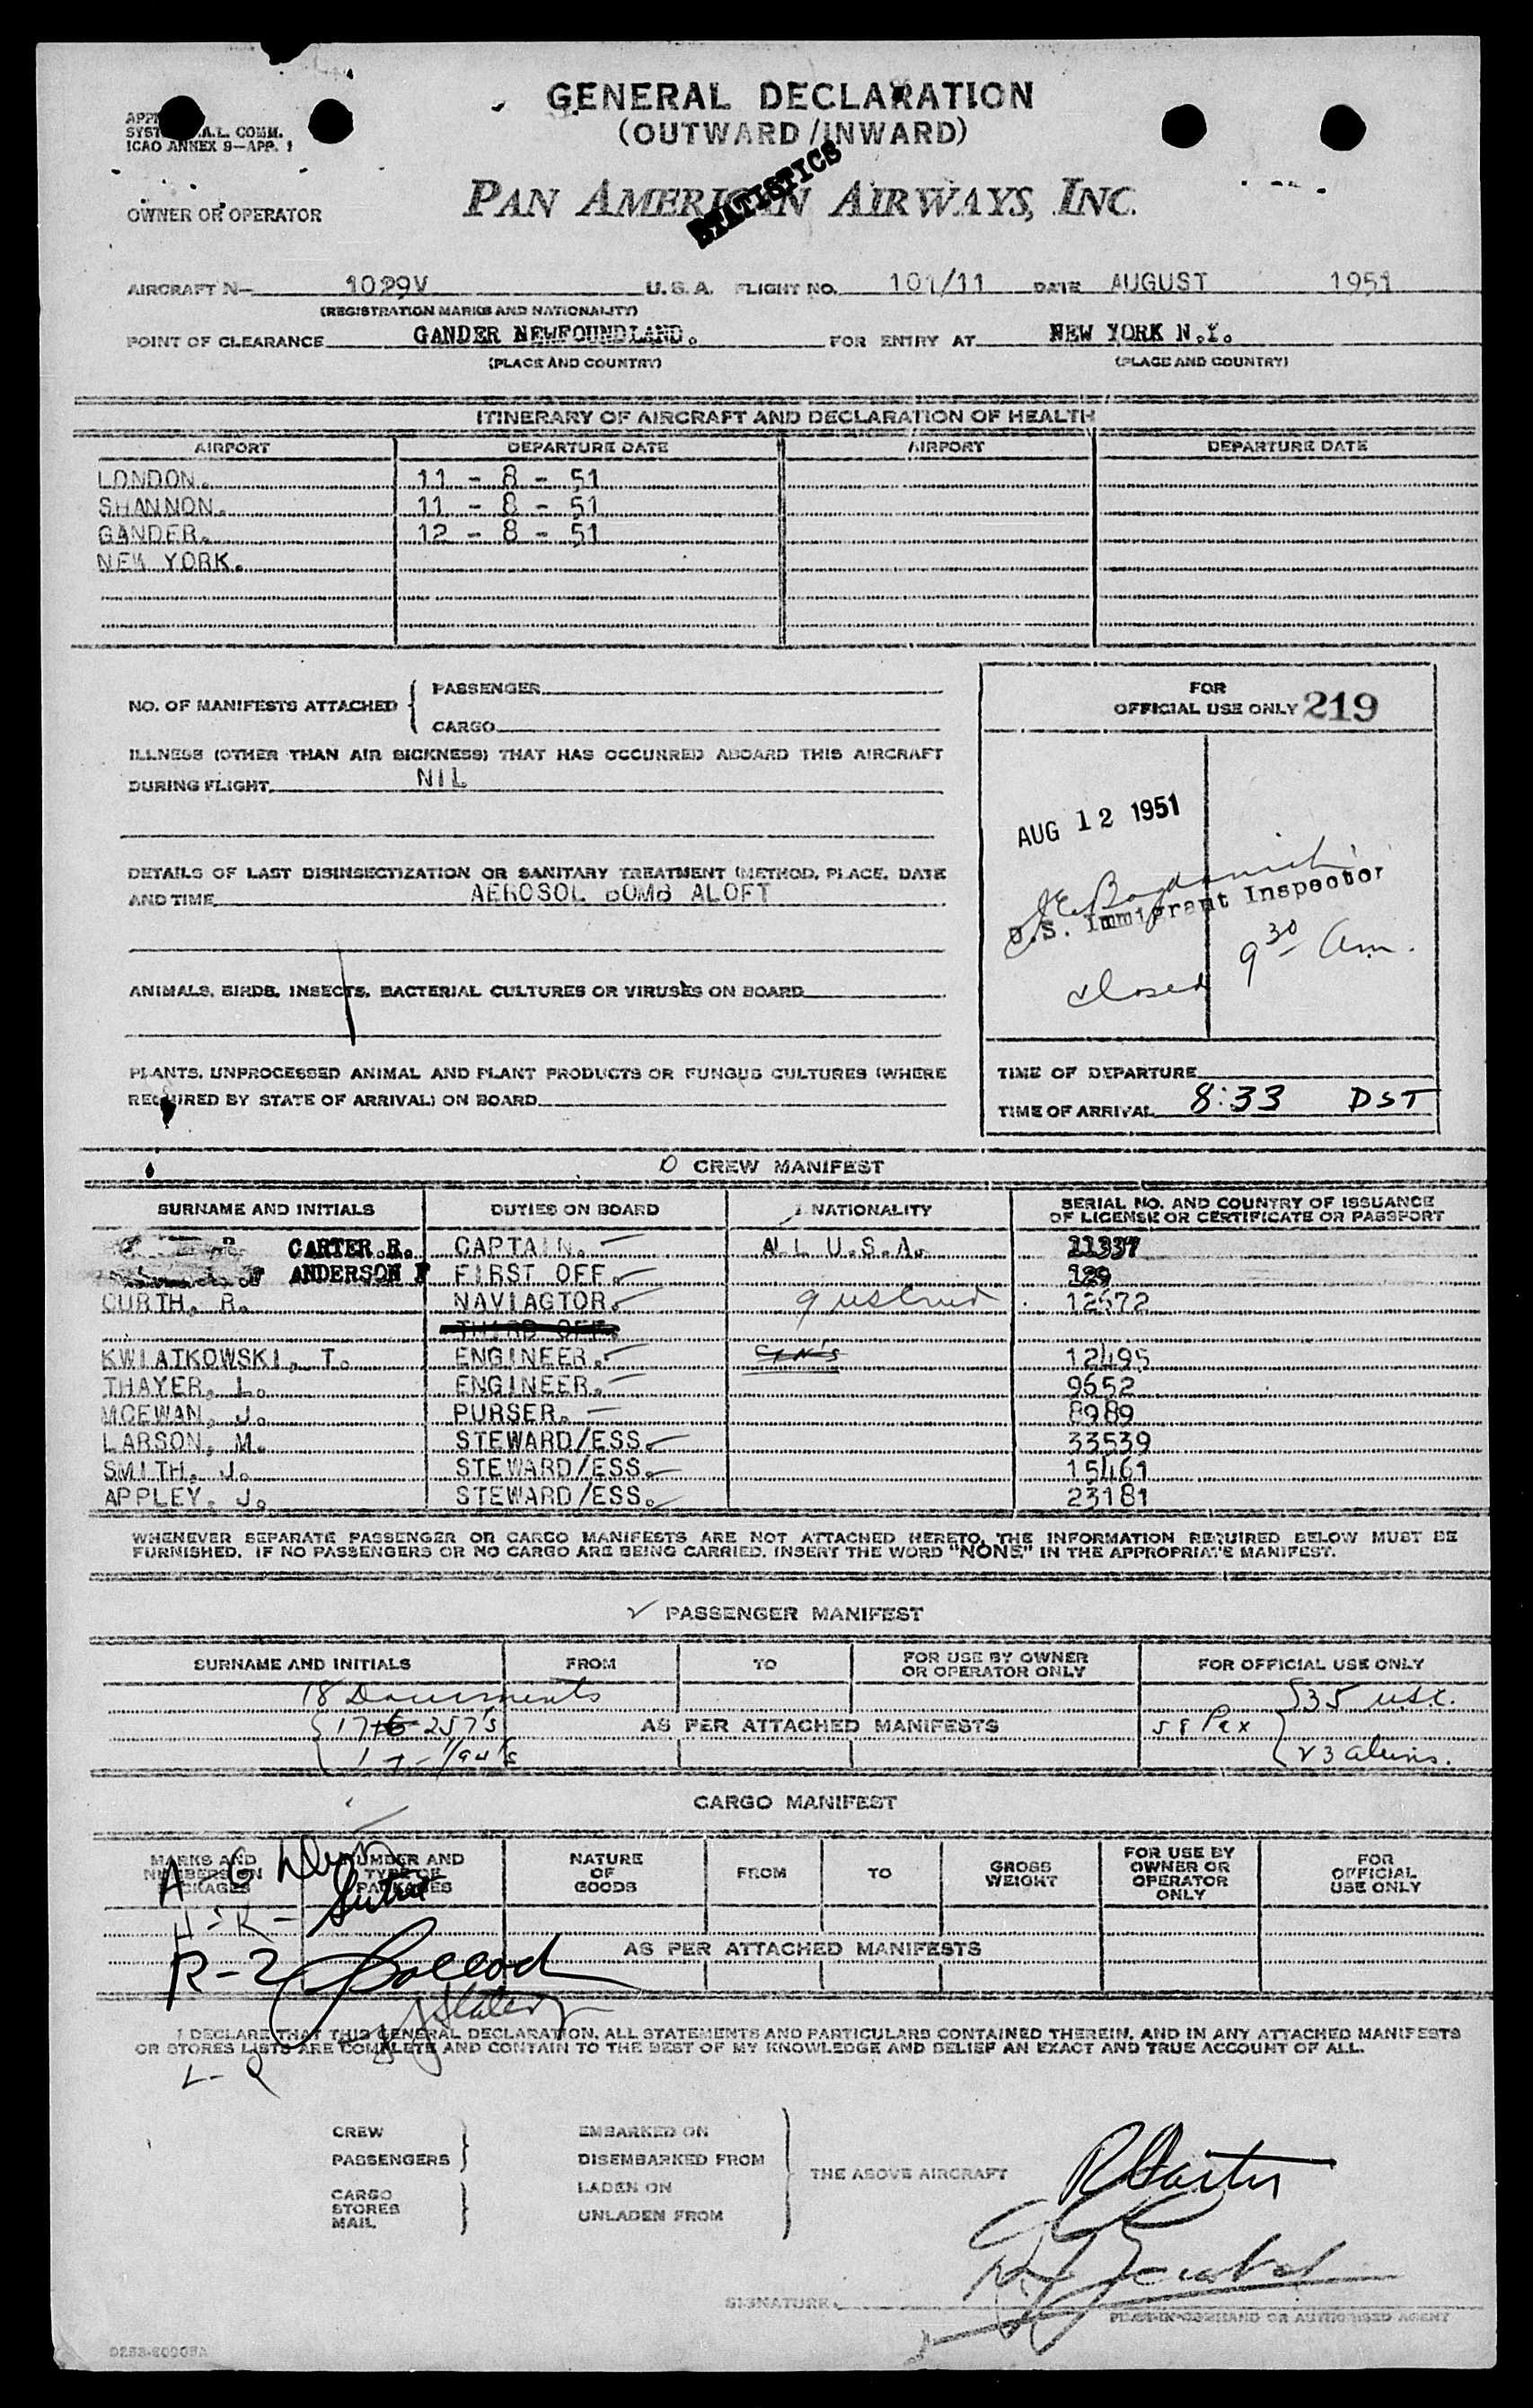 GENERAL DECLARATION
(OUTWARD/INWARD)
SYST A.L. COMM.
ICAO ANNEX 9—APP. 1
STATISTICS
OWNER OR OPERATOR PAN AMERICAN AIRWAYS, INC.
AIRCRAFT N— 1029V U.S.A. FLIGHT NO. 101/11 DATE AUGUST 1951
(REGISTRATION MARKS AND NATIONALITY)
POINT OF CLEARANCE GANDER NEWFOUNDLAND. FOR ENTRY AT NEW YORK N.Y.
(PLACE AND COUNTRY) (PLACE AND COUNTRY)
ITINERARY OF AIRCRAFT AND DECLARATION OF HEALTH
AIRPORT DEPARTURE DATE AIRPORT DEPARTURE DATE
LONDON. 11 - 8 - 51
SHANNON. 11 - 8 - 51
GANDER. 12 - 8 - 51
NEW YORK.
NO. OF MANIFESTS ATTACHED { PASSENGER
CARGO
FOR
OFFICIAL USE ONLY 219
ILLNESS (OTHER THAN AIR SICKNESS) THAT HAS OCCURRED ABOARD THIS AIRCRAFT
DURING FLIGHT NIL
AUG 12 1951
DETAILS OF LAST DISINSECTIZATION OR SANITARY TREATMENT (METHOD, PLACE, DATE
AND TIME AEROSOL BOMB ALOFT
U.S. Immigrant Inspector
closed 9 30 am.
ANIMALS, BIRDS, INSECTS, BACTERIAL CULTURES OR VIRUSES ON BOARD
PLANTS, UNPROCESSED ANIMAL AND PLANT PRODUCTS OR FUNGUS CULTURES (WHERE
REQUIRED BY STATE OF ARRIVAL) ON BOARD
TIME OF DEPARTURE
TIME OF ARRIVAL 8:33 DST
CREW MANIFEST
SURNAME AND INITIALS DUTIES ON BOARD NATIONALITY SERIAL NO. AND COUNTRY OF ISSUANCE
OF LICENSE OR CERTIFICATE OR PASSPORT
CARTER.R. CAPTAIN. ALL U.S.A. 11337
ANDERSON F FIRST OFF. 129
CURTH, R. NAVIAGTOR. 9 12572
THIRD OFF.
KWIATKOWSKI, T. ENGINEER. 12495
THAYER, L. ENGINEER. 9652
MCEWAN, J. PURSER. 8989
LARSON, M. STEWARD/ESS. 33539
SMITH, J. STEWARD/ESS. 15461
APPLEY, J. STEWARD/ESS. 23181
WHENEVER SEPARATE PASSENGER OR CARGO MANIFESTS ARE NOT ATTACHED HERETO, THE INFORMATION REQUIRED BELOW MUST BE
FURNISHED. IF NO PASSENGERS OR NO CARGO ARE BEING CARRIED, INSERT THE WORD "NONE" IN THE APPROPRIATE MANIFEST.
PASSENGER MANIFEST
SURNAME AND INITIALS FROM TO FOR USE BY OWNER
OR OPERATOR ONLY FOR OFFICIAL USE ONLY
18 Documents 35 usc.
257's AS PER ATTACHED MANIFESTS 58 Pax
23 aliens.
CARGO MANIFEST
MARKS AND
NUMBERS ON
PACKAGES NUMBER AND
TYPE OF
PACKAGES NATURE
OF
GOODS FROM TO GROSS
WEIGHT FOR USE BY
OWNER OR
OPERATOR
ONLY FOR
OFFICIAL
USE ONLY
A - G
H - K -
R - Z
AS PER ATTACHED MANIFESTS
I DECLARE THAT THIS GENERAL DECLARATION, ALL STATEMENTS AND PARTICULARS CONTAINED THEREIN, AND IN ANY ATTACHED MANIFESTS
OR STORES LISTS ARE COMPLETE AND CONTAIN TO THE BEST OF MY KNOWLEDGE AND BELIEF AN EXACT AND TRUE ACCOUNT OF ALL.
L - Q
CREW EMBARKED ON
PASSENGERS DISEMBARKED FROM
THE ABOVE AIRCRAFT RCarter
CARGO LADEN ON
STORES
MAIL UNLADEN FROM
SIGNATURE
PILOT-IN-COMMAND OR AUTHORISED AGENT